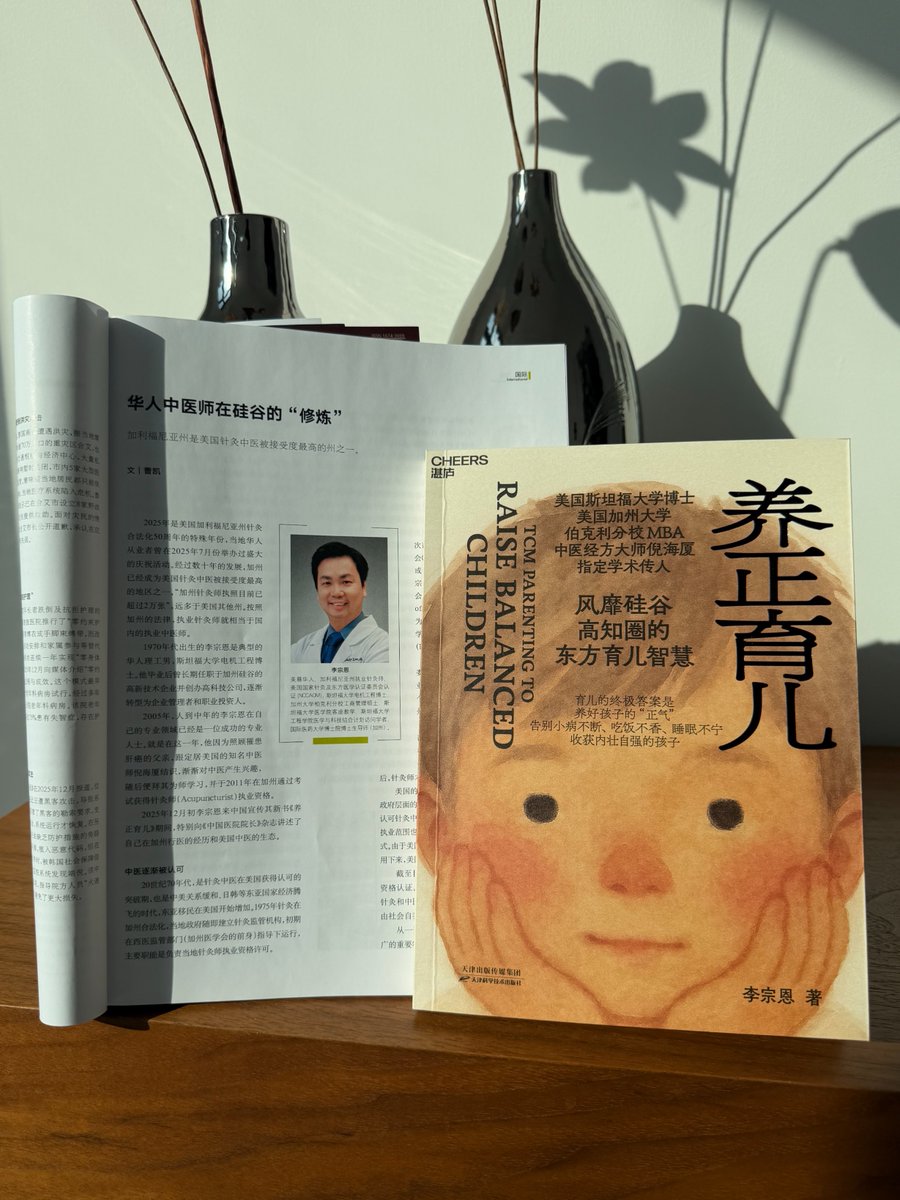 国际
International
华人中医师在硅谷的“修炼”
加利福尼亚州是美国针灸中医被接受度最高的州之一。
文 | 曹凯
2025年是美国加利福尼亚州针灸
合法化50周年的特殊年份，当地华人
从业者曾在2025年7月份举办过盛大
的庆祝活动。经过数十年的发展，加州
已经成为美国针灸中医被接受度最高
的地区之一，“加州针灸师执照目前已
超过2万张”，远多于美国其他州。按照
加州的法律，执业针灸师就相当于国
内的执业中医师。
1970年代出生的李宗恩是典型的
华人理工男，斯坦福大学电机工程博
士。他毕业后曾长期任职于加州硅谷的
高新技术企业并创办高科技公司，逐渐
转型为企业管理者和职业投资人。
2005年，人到中年的李宗恩在自
己的专业领域已经是一位成功的专业
人士，就是在这一年，他因为照顾罹患
肝癌的父亲，跟定居美国的知名中医
师倪海厦结识，渐渐对中医产生兴趣，
随后便拜其为师学习，并于2011年在加州通过考
试获得针灸师(Acupuncturist)执业资格。
2025年12月初李宗恩来中国宣传其新书《养
正育儿》期间，特别向《中国医院院长》杂志讲述了
自己在加州行医的经历和美国中医的生态。
中医逐渐被认可
20世纪70年代，是针灸中医在美国获得认可的
突破期，也是中美关系缓和、日韩等东亚国家经济腾
飞的时代，东亚移民在美国开始增加。1975年针灸在
加州合法化，当地政府随即建立针灸监管机构，初期
在西医监管部门(加州医学会的前身)指导下运行，
主要职能是负责当地针灸师执业资格许可。
李宗恩
美籍华人，加利福尼亚州执业针灸师，
美国国家针灸及东方医学认证委员会认
证(NCCAOM)，斯坦福大学电机工程博士，
加州大学柏克利分校工商管理硕士，斯
坦福大学医学院客座教师，斯坦福大学
工程学院医学与科技结合计划访问学者，
国际医药大学博士院博士生导师(加州)。
CHEERS
湛庐
TCM PARENTING TO
RAISE BALANCED
CHILDREN
美国斯坦福大学博士
美国加州大学
伯克利分校 MBA
中医经方大师倪海厦
指定学术传人
风靡硅谷
高知圈的
东方育儿智慧
育儿的终极答案是
养好孩子的“正气”
告别小病不断、吃饭不香、睡眠不宁
收获内壮自强的孩子
养正育儿
天津出版传媒集团
天津科学技术出版社
李宗恩 著